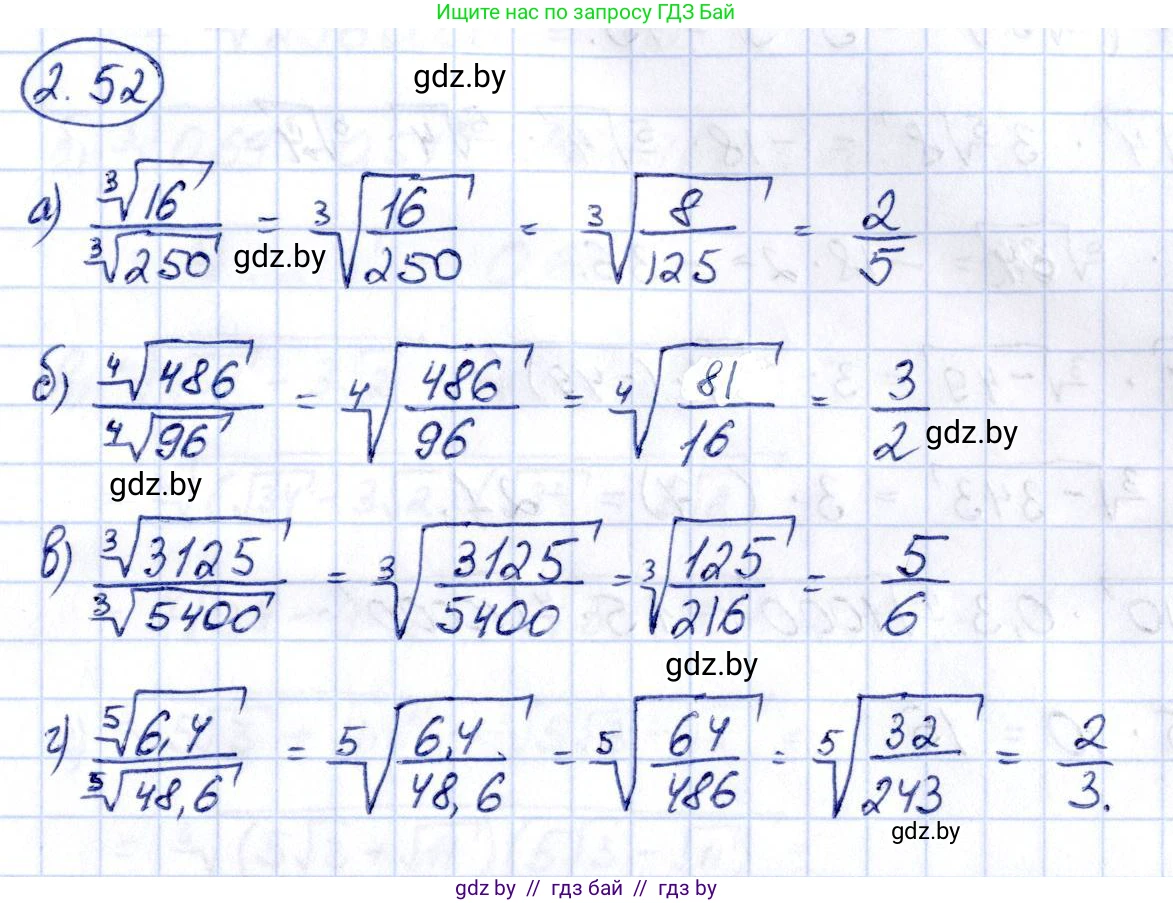 Ищите нас по запросу ГДЗ Бай
2. 52
gdz.by
а) ∛16 / ∛250 = ∛(16/250) = ∛(8/125) = 2/5
gdz.by
б) ∜486 / ∜96 = ∜(486/96) = ∜(81/16) = 3/2
gdz.by
gdz.by
в) ∛3125 / ∛5400 = ∛(3125/5400) = ∛(125/216) = 5/6
gdz.by
г) ⁵√6,4 / ⁵√48,6 = ⁵√(6,4/48,6) = ⁵√(64/486) = ⁵√(32/243) = 2/3.
gdz.by
gdz.by // гдз бай // гдз by